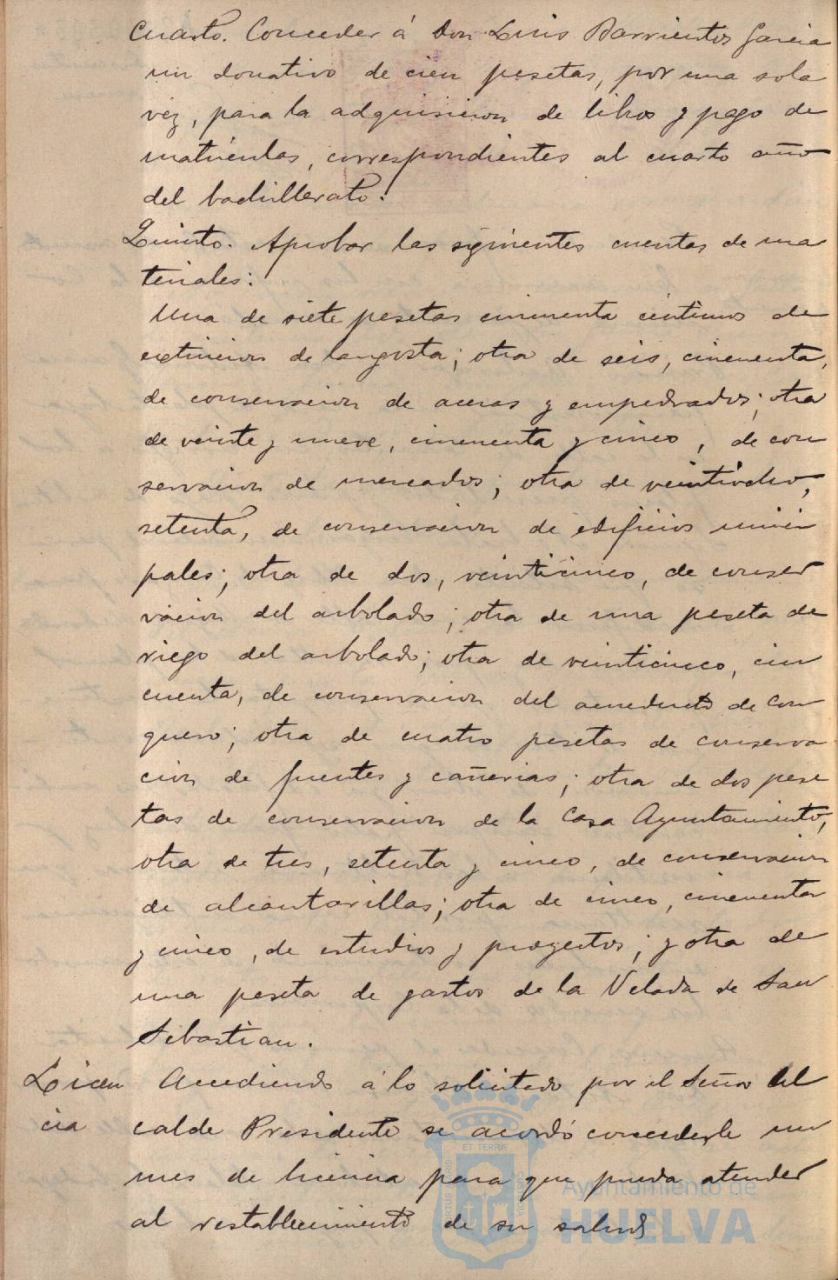 Cuarto. Conceder á Don Luis Barrientos Garcia
un donativo de cien pesetas, por una sola
vez, para la adquisicion de libros y pago de
matriculas, correspondientes al cuarto año
del bachillerato.
Quinto. Aprobar las siguientes cuentas de ma
teriales:
Una de siete pesetas cincuenta centimos de
extincion de langosta; otra de seis, cincuenta,
de conservacion de aceras y empedrados; otra
de veinte y nueve, cincuenta y cinco, de con
servacion de mercados; otra de veintiocho,
setenta, de conservacion de edificios munici
pales; otra de dos, veinticinco, de conser
vacion del arbolado; otra de una peseta de
riego del arbolado; otra de veinticinco, cin
cuenta, de conservacion del acueducto de Con
quero; otra de cuatro pesetas de conserva
cion de fuentes y cañerias; otra de dos pese
tas de conservacion de la Casa Ayuntamiento,
otra de tres, setenta y cinco, de conservacion
de alcantarillas; otra de cinco, cincuenta
y cinco, de estudios y proyectos; y otra de
una peseta de gastos de la Velada de San
Sebastian.
Licen Accediendo á lo solicitado por el Señor Al
cia calde Presidente se acordó concederle un
mes de licencia para que pueda atender
al restablecimiento de su salud
Ayuntamiento de
HUELVA